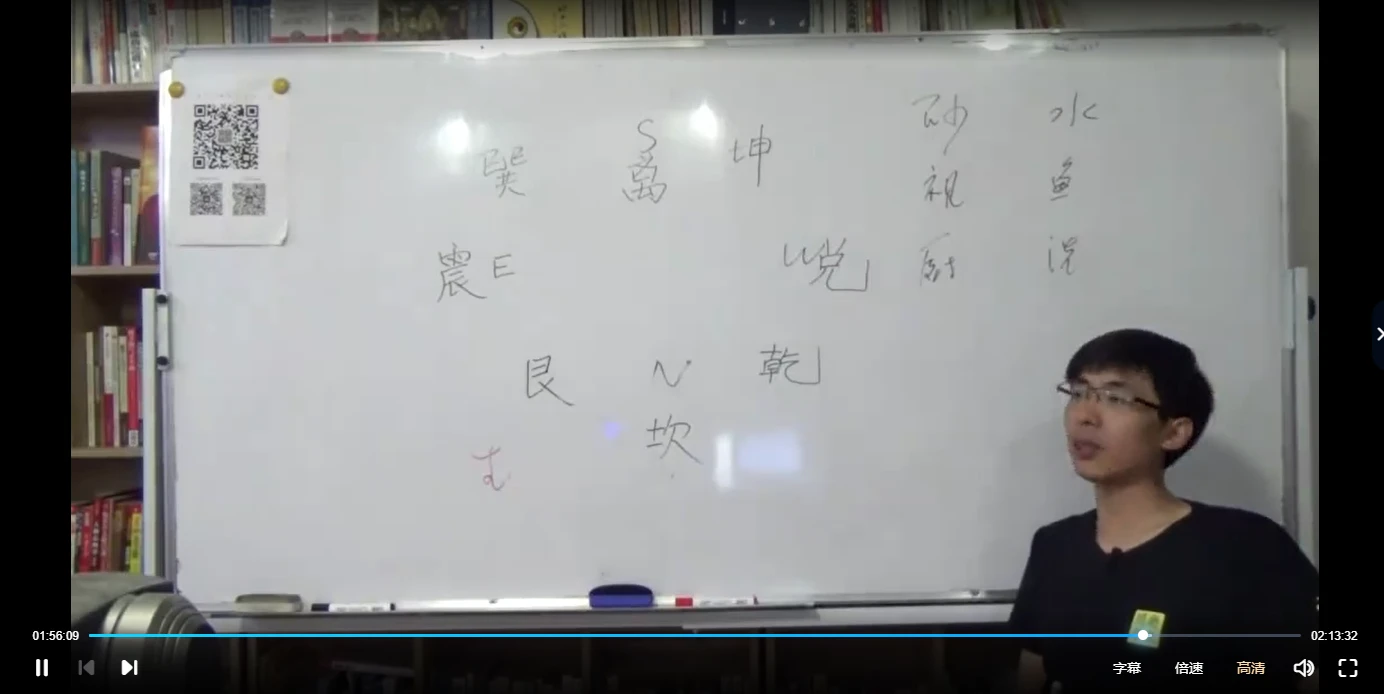 S
巽 离 坤 砂 水
祝 鱼
震 E W 兑 厨
艮 N 乾
坎
01:56:09 02:13:32
字幕 倍速 高清